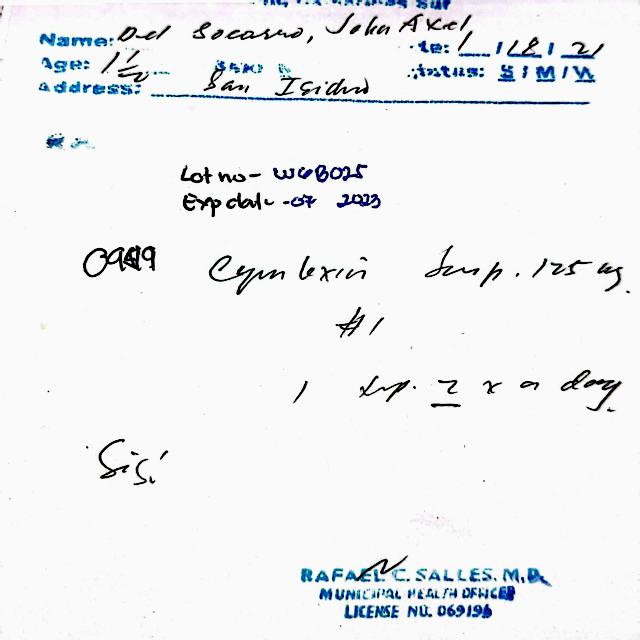 Name: Del Socarro, John Axel
te: 1 / 18 / 21
Age: 1 1/2
status: S / M / W
Address: San Isidro
Lot no- W6B025
Exp date -07 2023
Susp. 125 mg
#1
1 tsp. 2 x a day
RAFAEL C. SALLES, M.D.
MUNICIPAL HEALTH OFFICER
LICENSE NO. 069196